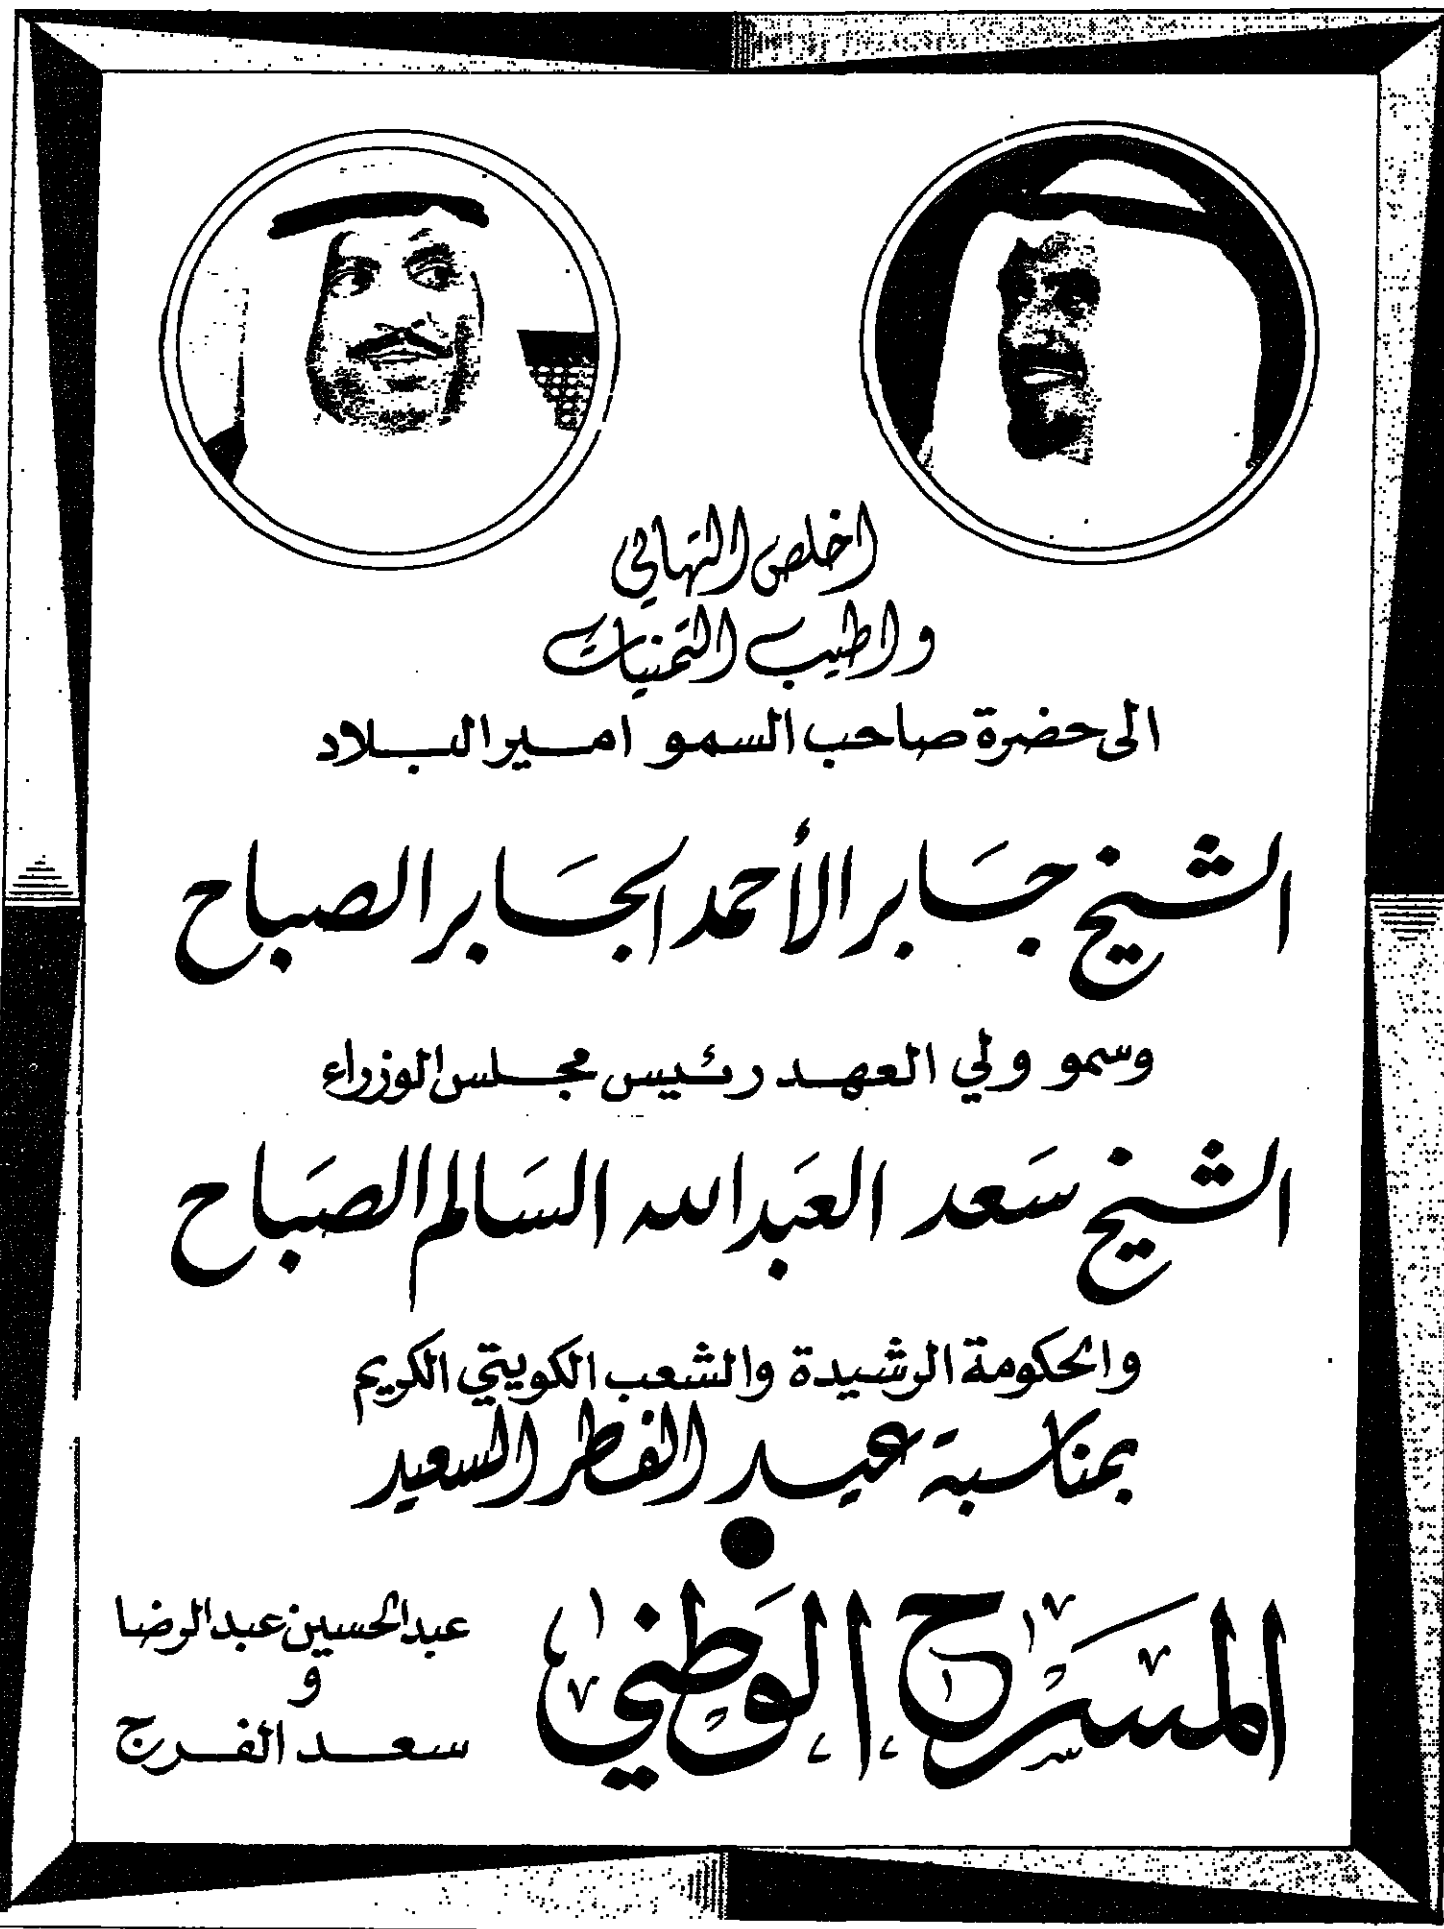 اخلص التهاني
واطيب التمنيات
الى حضرة صاحب السمو امير البلاد
الشيخ جَابر الأحمد الجَابر الصباح
وسمو ولي العهد رئيس مجلس الوزراء
الشيخ سَعد العَبدالله السَالم الصبَاح
والحكومة الرشيدة والشعب الكويتي الكريم
بمناسبة عيد الفطر السعيد
المسَرح الوَطني
عبدالحسين عبدالرضا
و
سعد الفرج